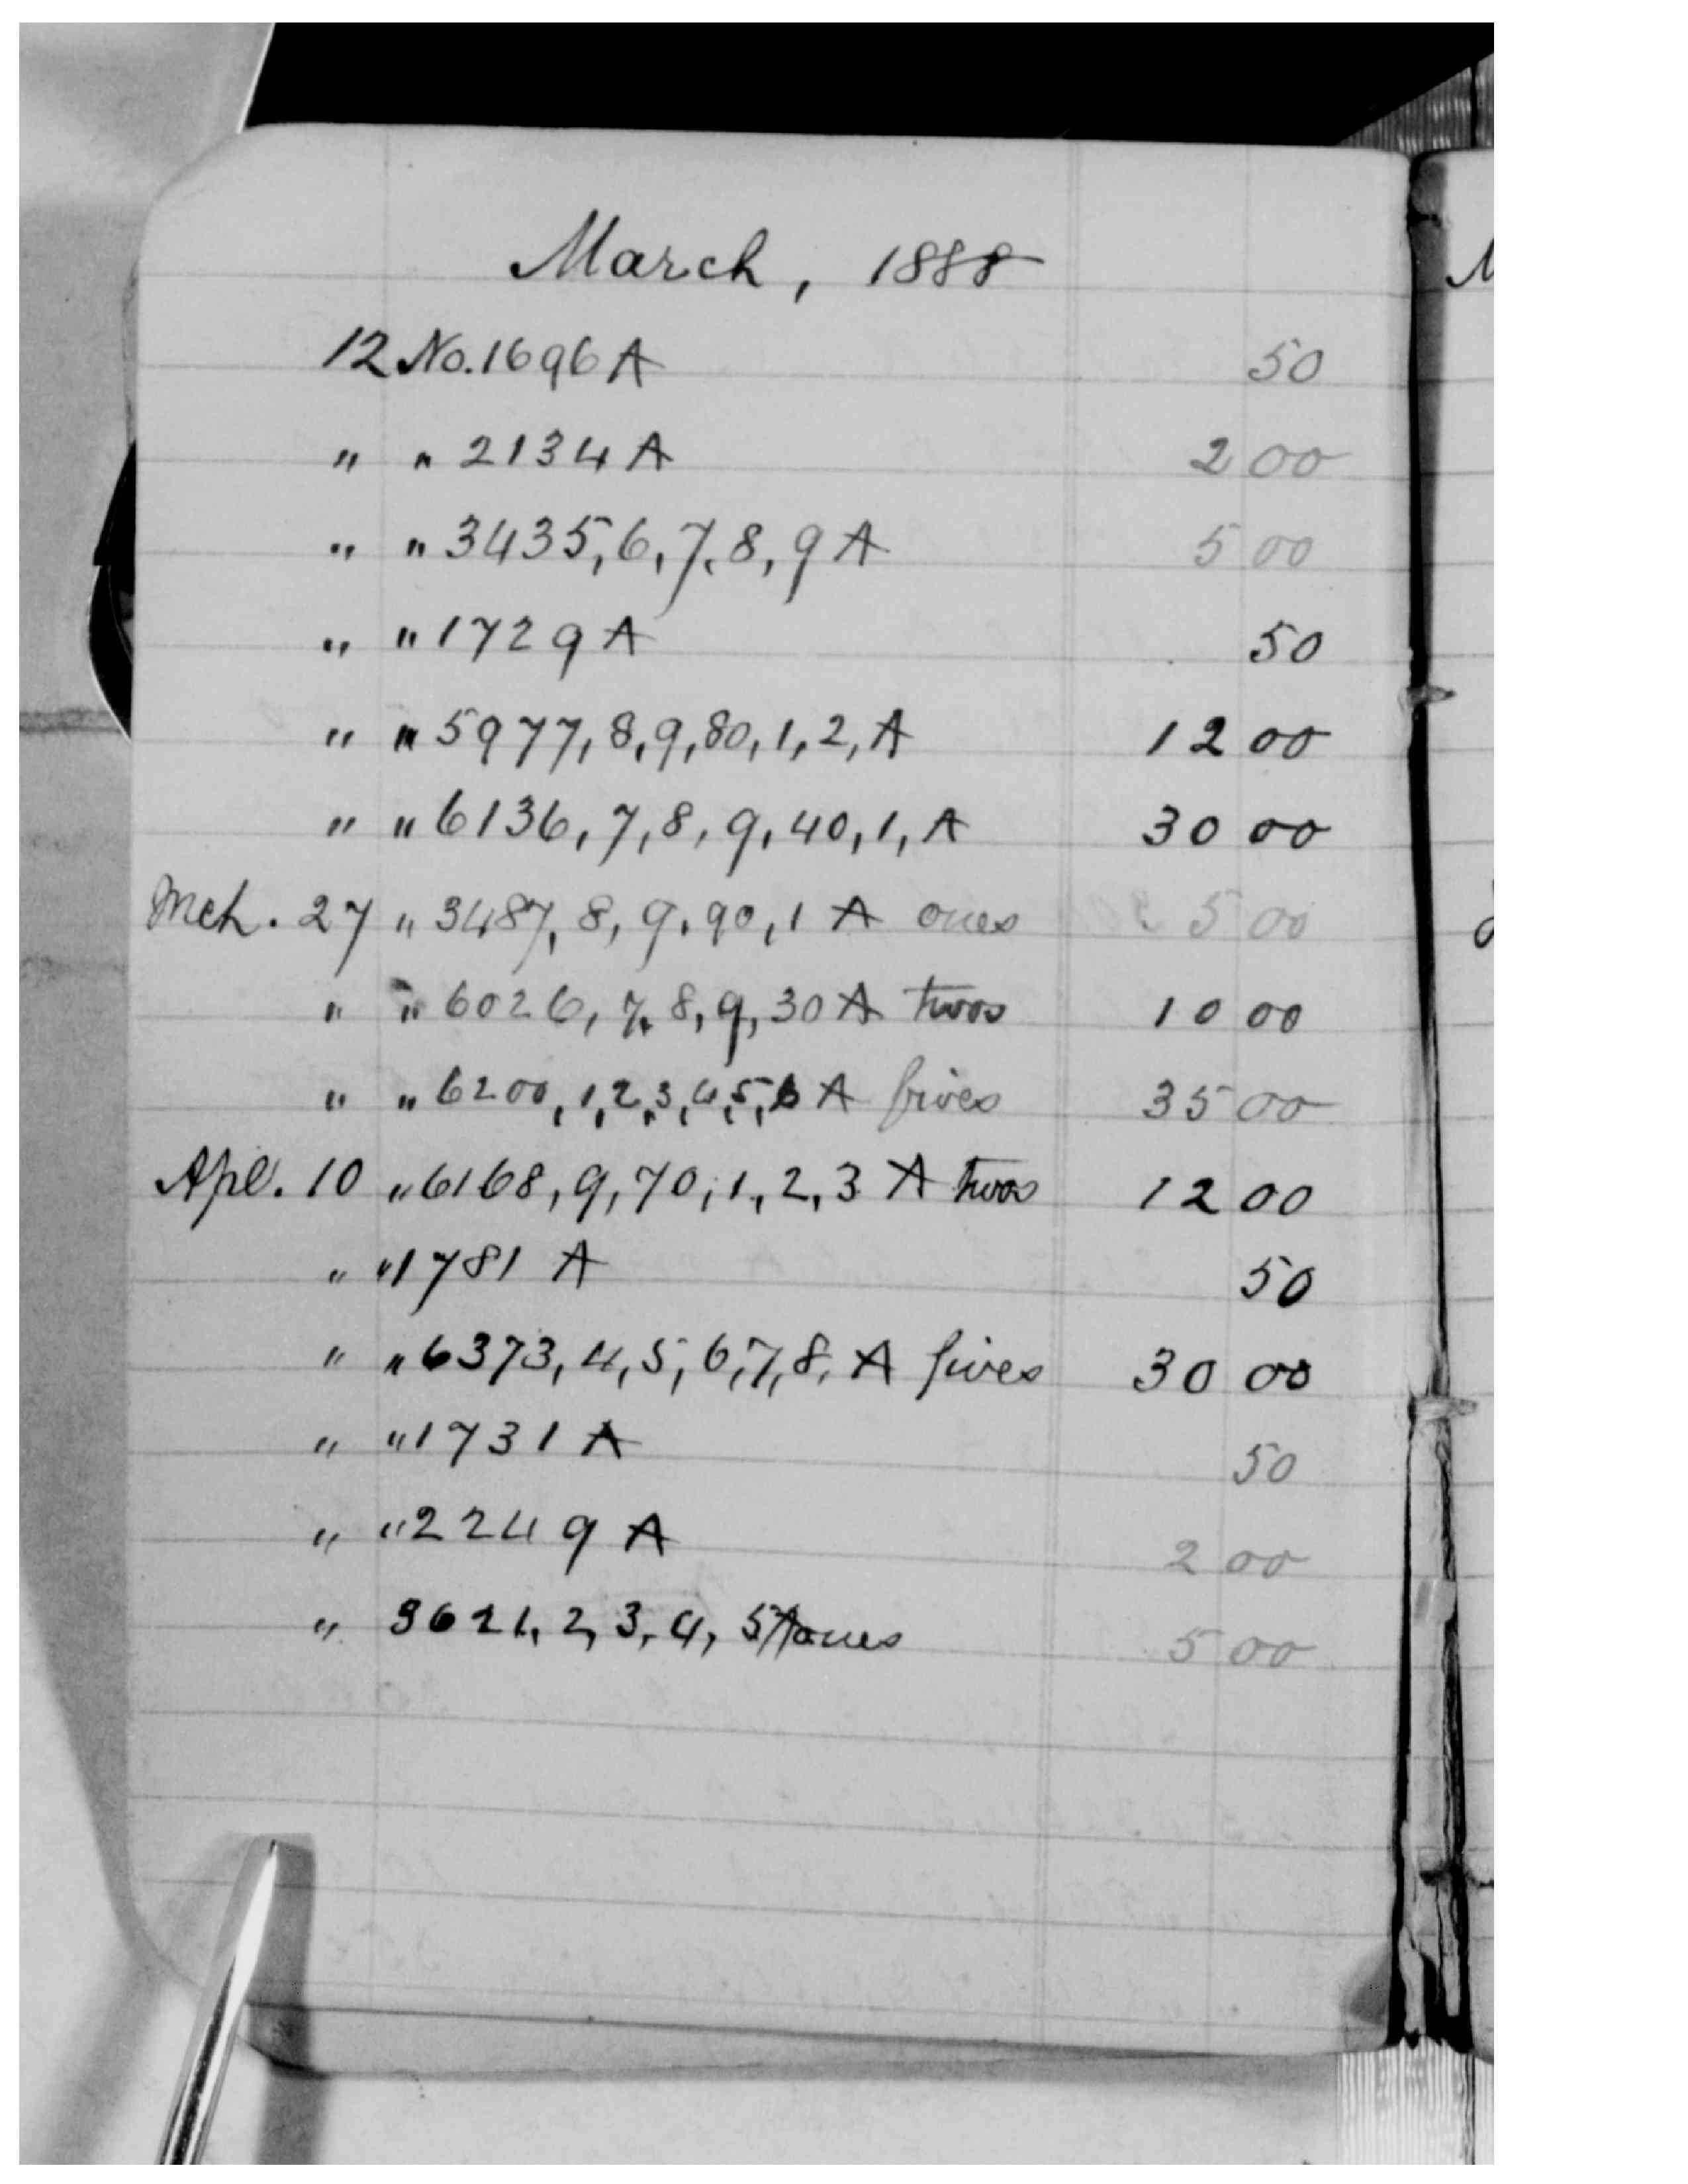 March, 1888
12 No. 1696 A 50
" " 2134 A 2 00
" " 3435, 6, 7, 8, 9 A 5 00
" " 1729 A 50
" " 5977, 8, 9, 80, 1, 2, A 12 00
" " 6136, 7, 8, 9, 40, 1, A 30 00
Mch. 27 " 3487, 8, 9, 90, 1 A ones 5 00
" " 6026, 7, 8, 9, 30 A twos 10 00
" " 6200, 1, 2, 3, 4, 5, 6 A fives 35 00
Apl. 10 " 6168, 9, 70, 1, 2, 3 A twos 12 00
" " 1781 A 50
" " 6373, 4, 5, 6, 7, 8, A fives 30 00
" " 1731 A 50
" " 2249 A 2 00
" 3621, 2, 3, 4, 5 A ones 5 00